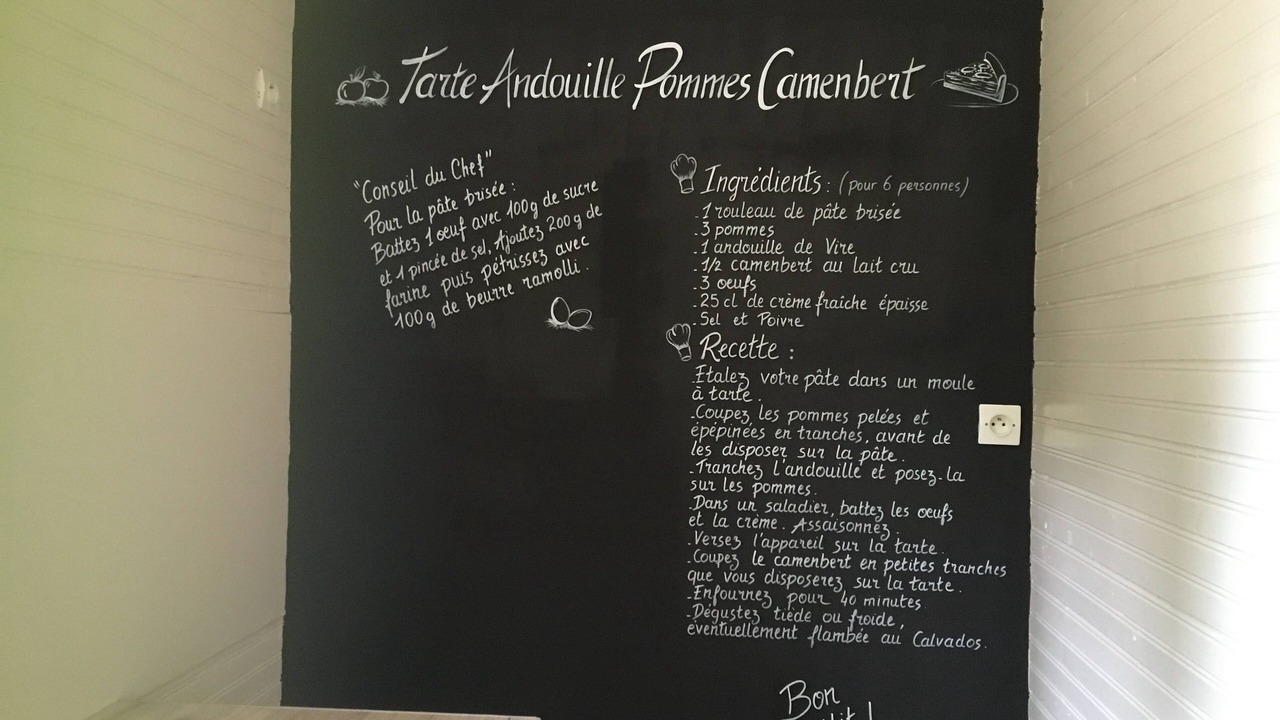 Tarte Andouille Pommes Camenbert
"Conseil du Chef"
Pour la pâte brisée :
Battez 1 oeuf avec 100g de sucre
et 1 pincée de sel, Ajoutez 200g de
farine puis pétrissez avec
100g de beurre ramolli.
Ingrédients : (pour 6 personnes)
- 1 rouleau de pâte brisée
- 3 pommes
- 1 andouille de Vire
- 1/2 camenbert au lait cru
- 3 oeufs
- 25 cl de crème fraîche épaisse
- Sel et Poivre
Recette :
- Etalez votre pâte dans un moule
à tarte.
- Coupez les pommes pelées et
épépinées en tranches, avant de
les disposer sur la pâte.
- Tranchez l'andouille et posez-la
sur les pommes.
- Dans un saladier, battez les oeufs
et la crème. Assaisonnez.
- Versez l'appareil sur la tarte.
- Coupez le camenbert en petites tranches
que vous disposerez sur la tarte.
- Enfournez pour 40 minutes
- Dégustez tiède ou froide,
éventuellement flambée au Calvados.
Bon